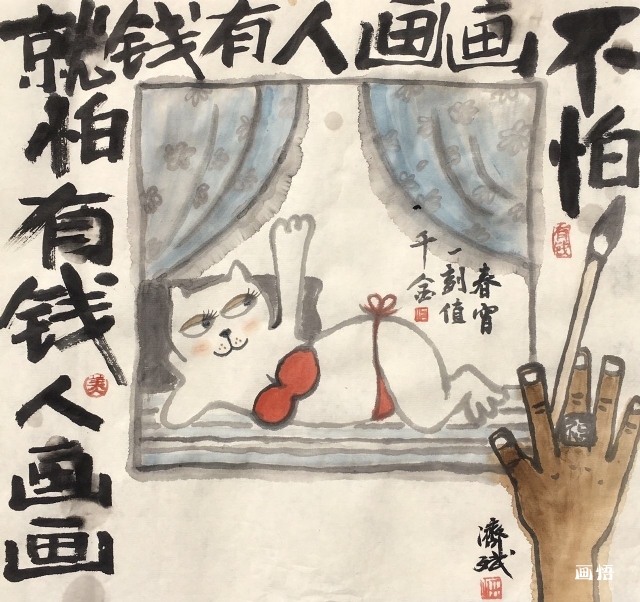 不怕
画画人有钱
就怕有钱人画画
春宵
一刻值
千金
濟斌
美
画悟